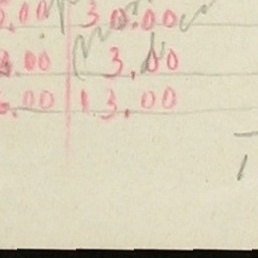 5.00 30.00
3.00 3.00
5.00 13.00